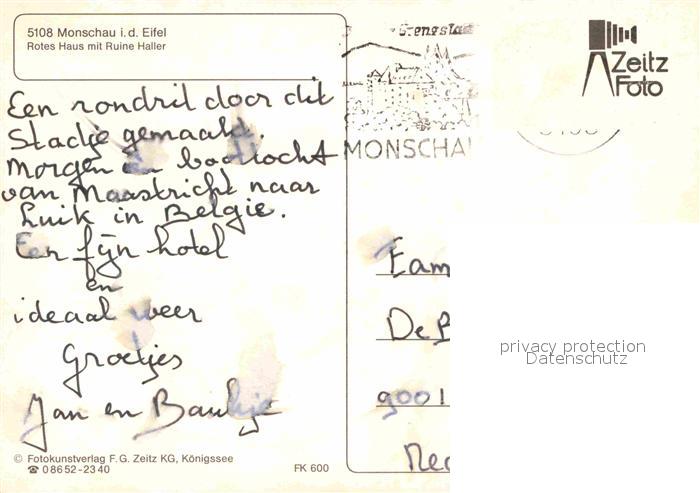 5108 Monschau i. d. Eifel
Rotes Haus mit Ruine Haller
Zeitz
Foto
MONSCHA
Een rondrit door dit
Stadje gemaakt.
Morgen en boottocht
van Maastricht naar
Luik in Belgie.
Een fijn hotel
en
ideaal weer
Groetjes
Jan en Baukje
Fam
De B
9001
Ned
privacy protection
Datenschutz
© Fotokunstverlag F. G. Zeitz KG, Königssee
☎ 08652-2340
FK 600